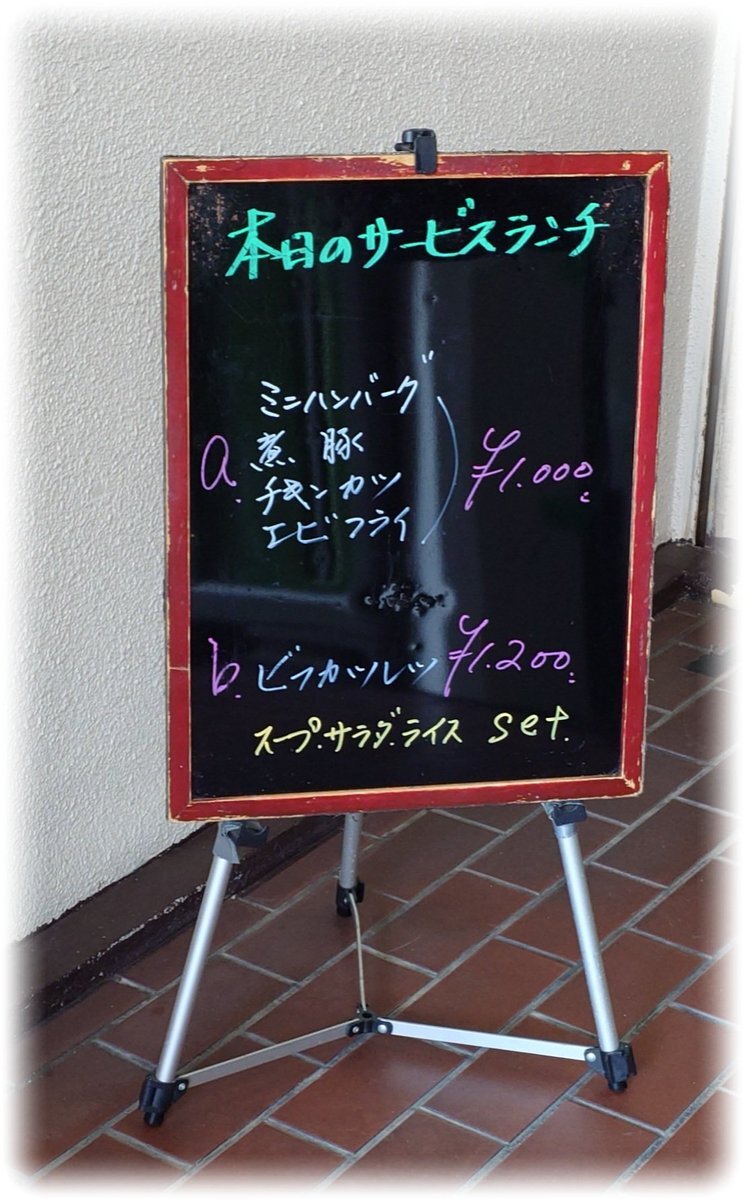 本日のサービスランチ
ミニハンバーグ
a. 煮豚 ¥1.000.
チキンカツ
エビフライ
b. ビーフカツレツ ¥1.200.
スープ.サラダ.ライス set.